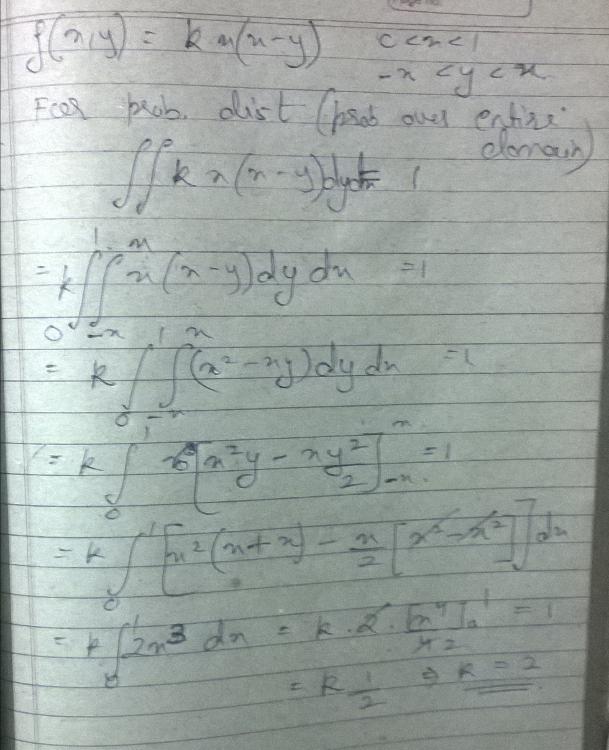 f(x,y) = k x(x-y)   0<x<1
-x<y<x
For prob. dist (prob over entire domain)
∬ k x(x-y)dydx = 1
= k ∫₀¹ ∫₋ₓˣ x(x-y)dy dx = 1
= k ∫₀¹ ∫₋ₓˣ (x²-xy)dy dx = 1
= k ∫₀¹ [x²y - xy²/2]₋ₓˣ = 1
= k ∫₀¹ [x²(x+x) - x/2 [x²-x²]] dx
= k ∫₀¹ 2x³ dx = k.2.[x⁴]₀¹/4 2 = 1
= k 1/2 ⇒ k = 2